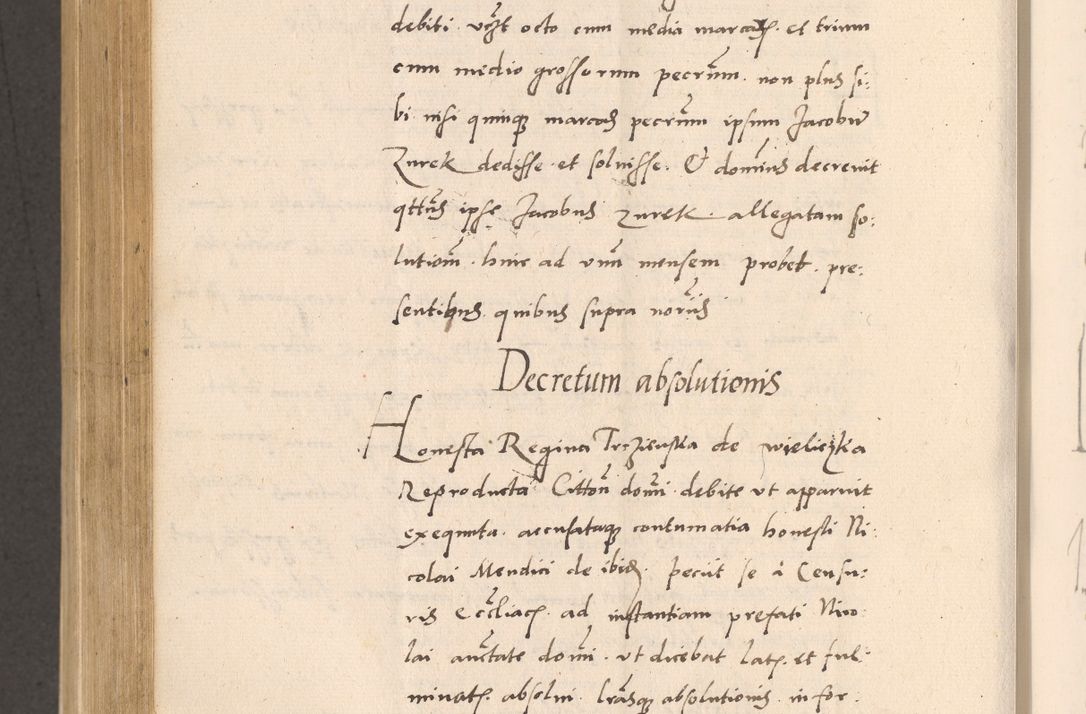 debiti vczt octo cum media marcaR et trium
cum medio grossorum pecrum. non plus si:
bi nisi quinqz marcas pecrum ipsum Jacobū
Zurek dedisse et soluisse. Et dominus decreuit
qttus ipse Jacobus Zurek. allegatam so:
lutiom. hinc ad vnū mensem probet. pre:
sentibus quibus supra
Decretum absolutionis
Honesta Regina Trczienska de wieliczka
Reproducta Citton domi debite vt apparuit
exequuta. accusataqz contumatia honesti Ni:
colai Mendici de ibid. peciit se à Censu:
ris Eccliacz. ad instantiam prefati Nico
lai auctate domi. vt dicebat latR. et ful:
minatR. absolui. lrasqz absolutionis in for: